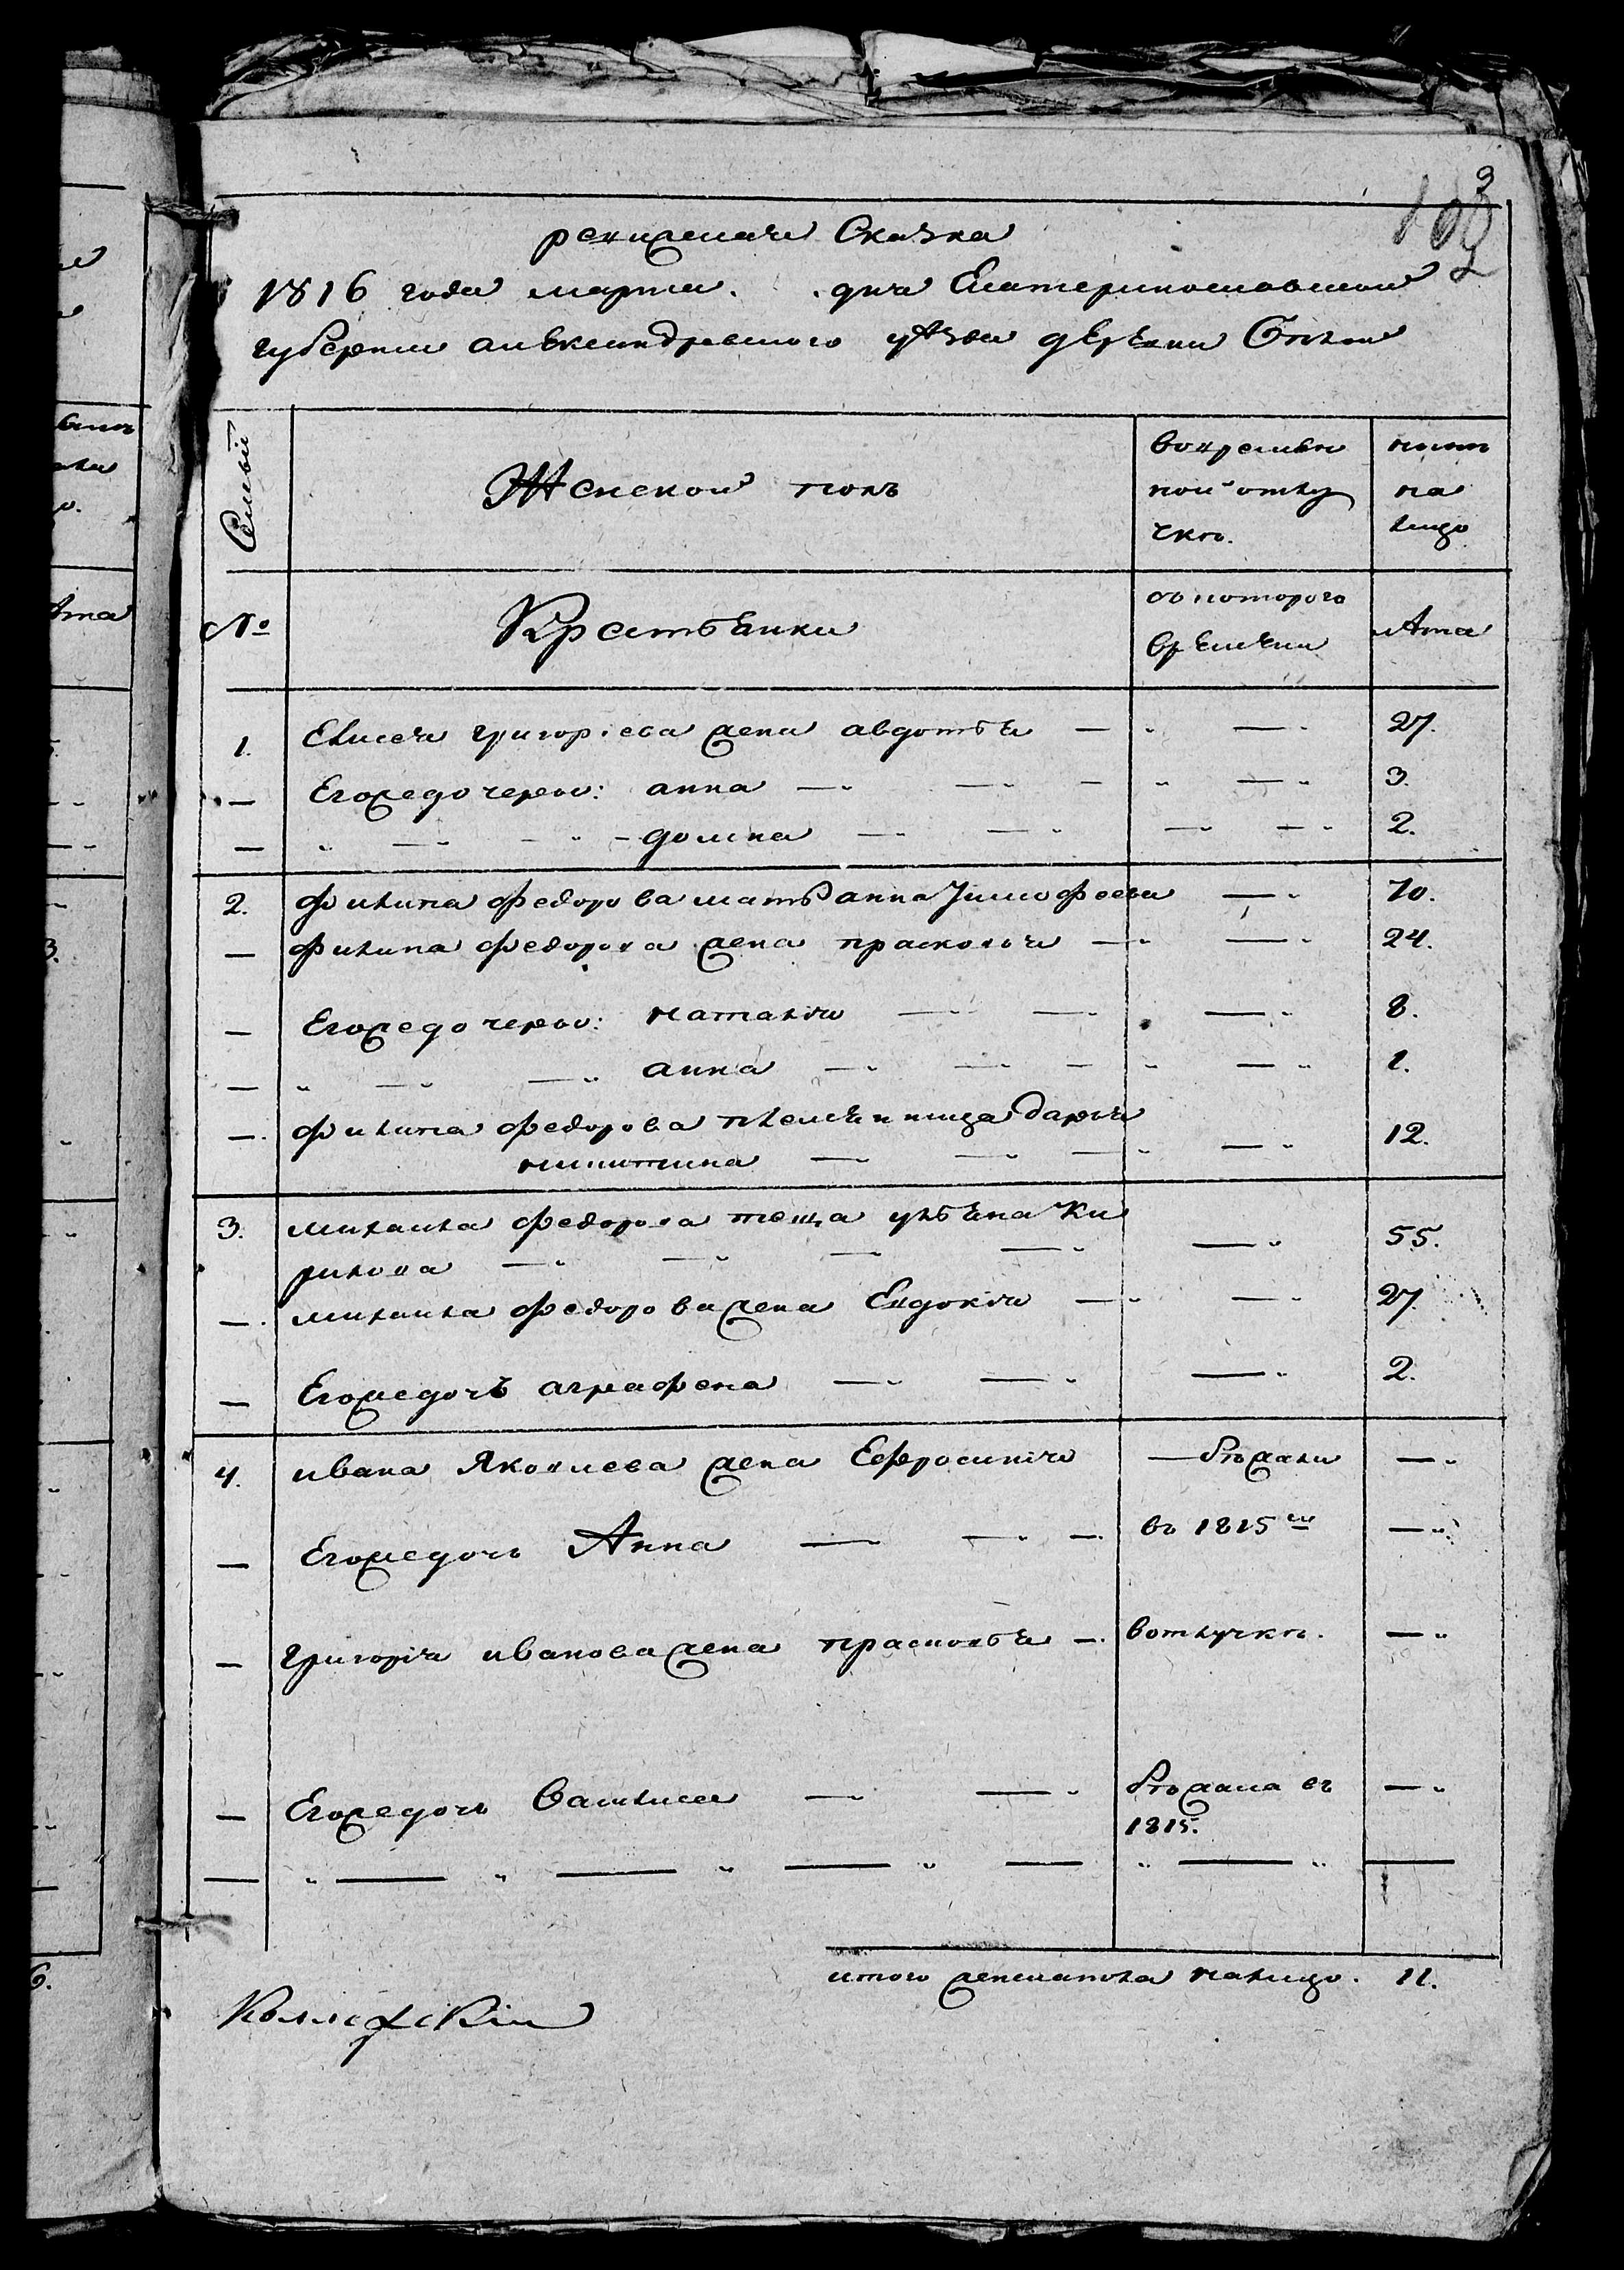 3
ревижская Сказка
1816 года марта . . дня Екатеринославской
губернии алѣксандровского уѣзда дерѣвни
Семьи
Женской полъ
вовремѣн
ной отлу
чкѣ.
нынѣ
на
лицо
№
Крѣстьянки
съ которого
врѣмѣни
лѣта
1. Елисея григорiева жена авдотья — 27.
— Егоже дочери: анна — 3.
— домна — 2.
2. филипа федорова мать анна Тимофеева — 70.
— филипа федорова жена прасковья — 24.
— Егоже дочери: наталiя — 8.
— анна — 1.
— филипа федорова племѣнница дарья
никитина — 12.
3. михаила федорова теща улѣяна Ки
рилова — 55.
— михаила федорова жена Евдокiя — 27.
— Егоже дочь аграфена — 2.
4. ивана Яковлева жена Ефросинiя — бежали —
— Егоже дочь Анна — въ 1815 —
— григорiя иванова жена прасковья — вотлучкѣ. —
— Егоже дочь Василиса — бежала въ —
1815.
итого женска пола налицо. 11.